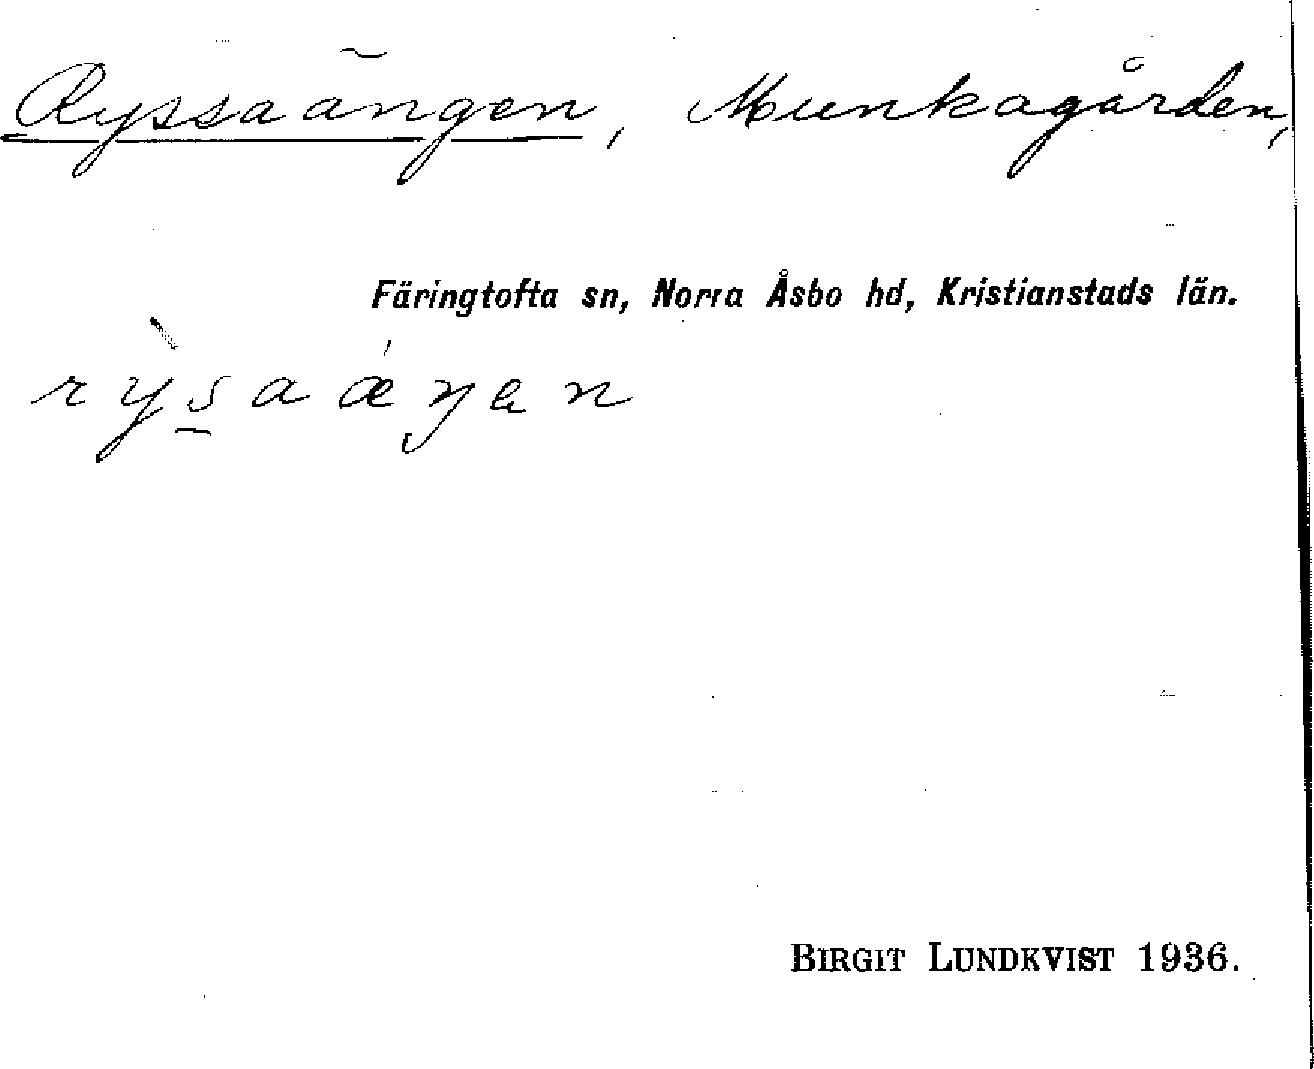 Ryssaängen, Munkagården,
Färingtofta sn, Norra Åsbo hd, Kristianstads län.
rỳs̠aǽŋen
BIRGIT LUNDKVIST 1936.